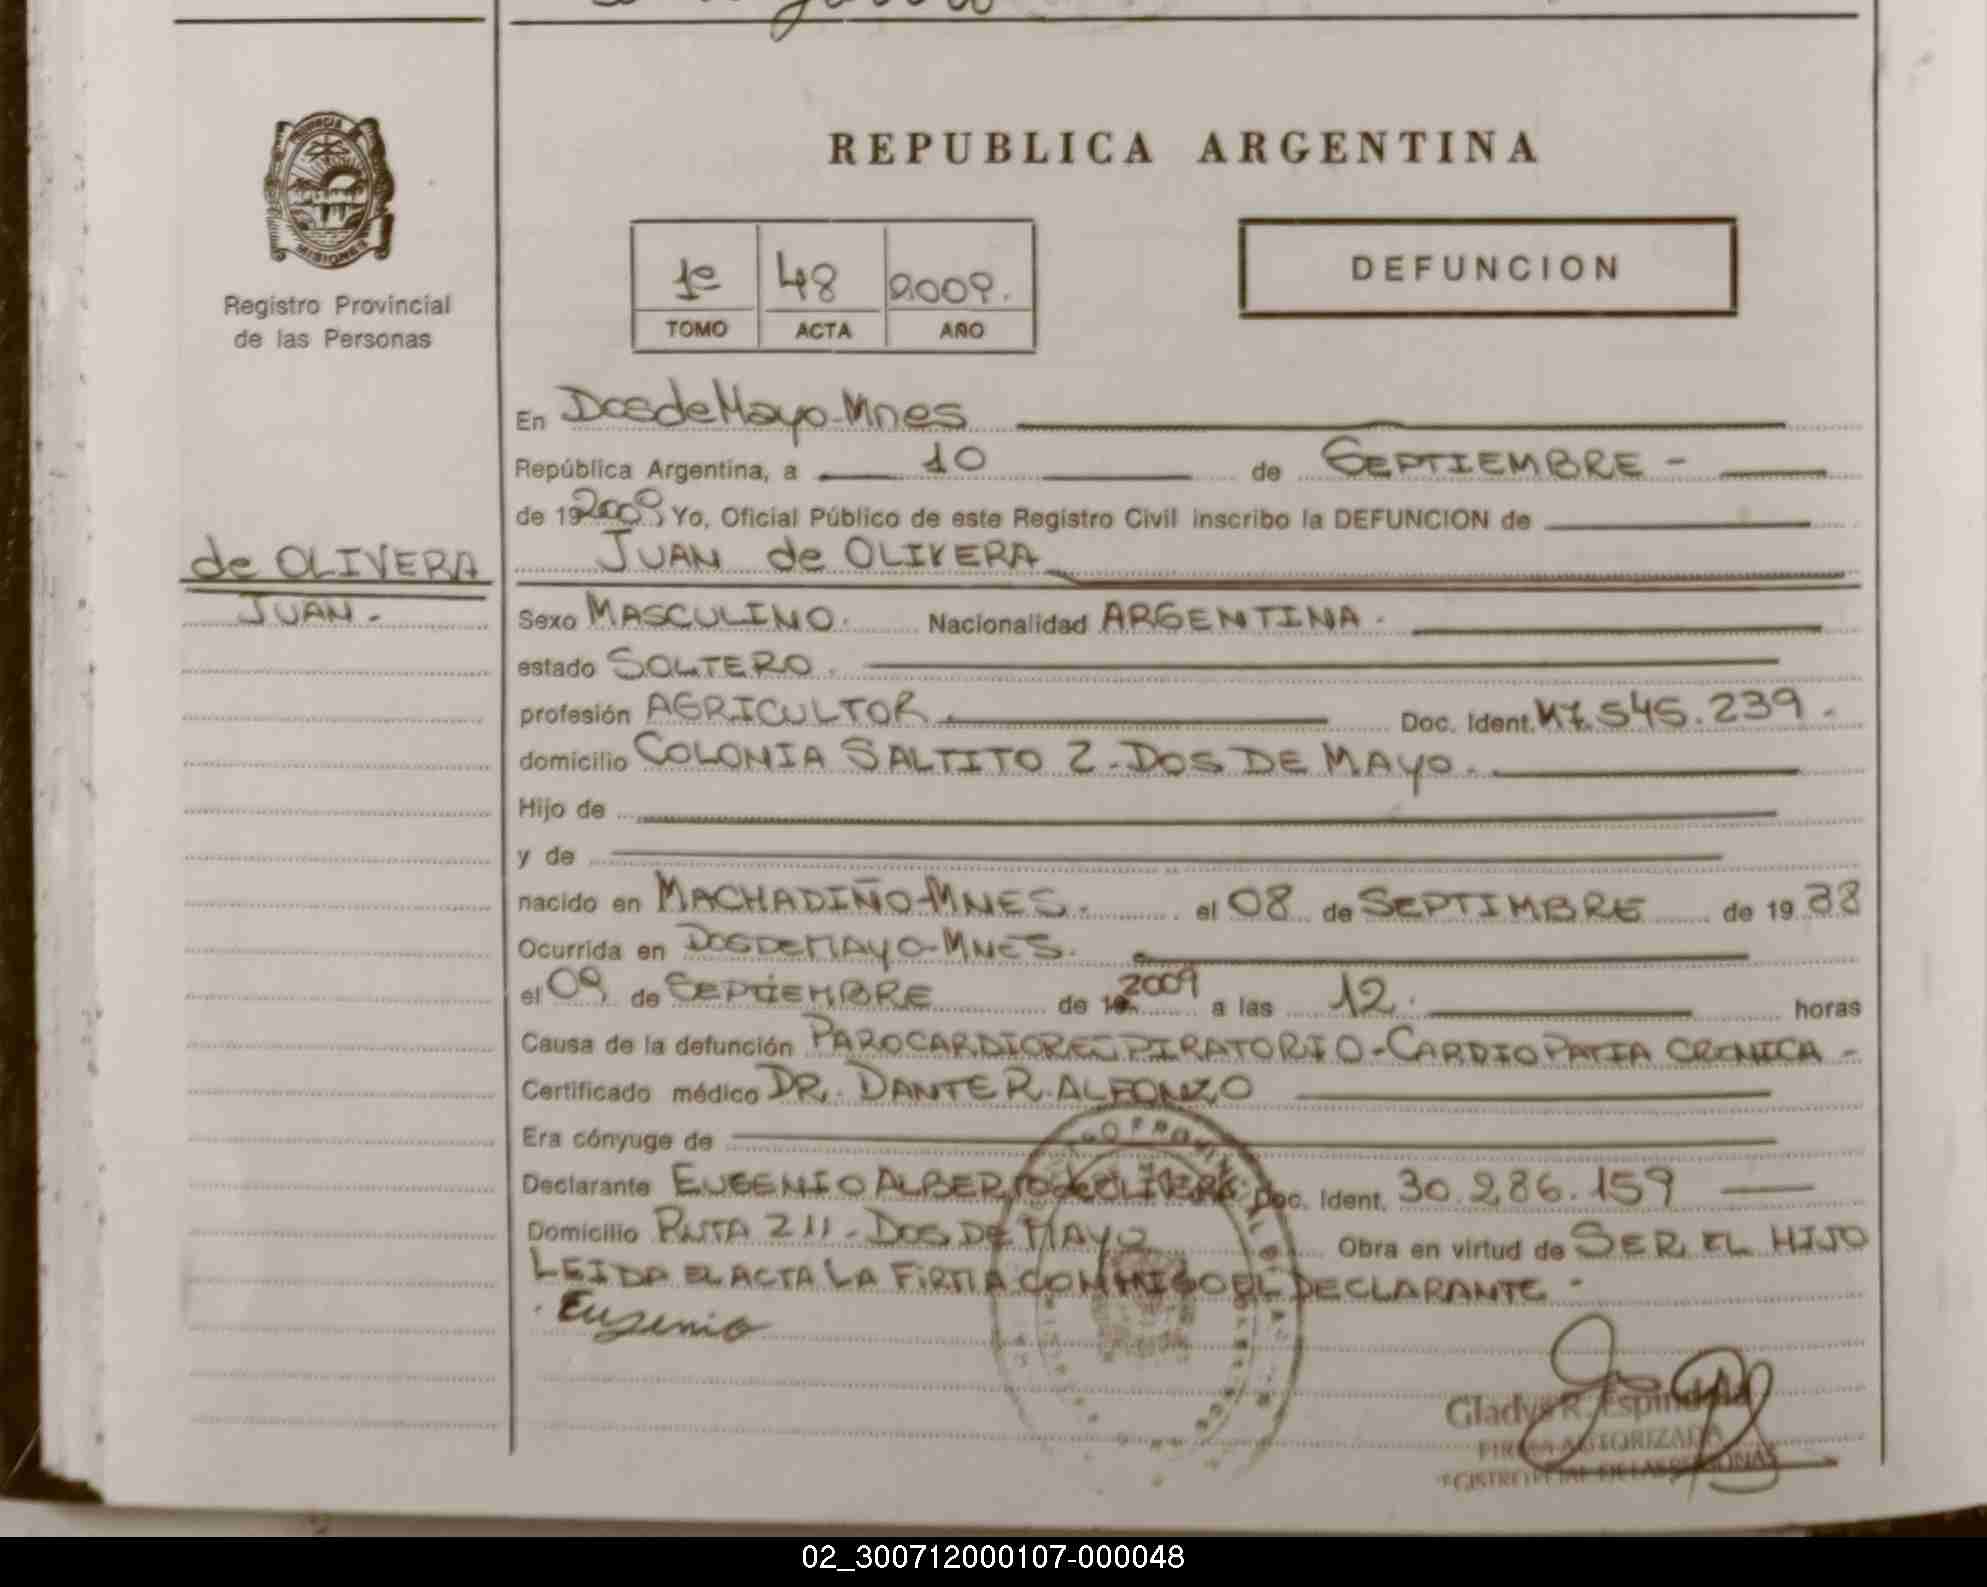 PROVINCIA DE
MISIONES
Registro Provincial
de las Personas
REPUBLICA ARGENTINA
1e 48 2009.
TOMO ACTA AÑO
DEFUNCION
En Dos de Mayo-Mnes
República Argentina, a 10 de SEPTIEMBRE -
de 192009, Yo, Oficial Público de este Registro Civil inscribo la DEFUNCION de
JUAN de OLIVERA
de OLIVERA
JUAN.-
Sexo MASCULINO. Nacionalidad ARGENTINA.
estado SOLTERO.
profesión AGRICULTOR. Doc. Ident. M7.545.239.-
domicilio COLONIA SALTITO 2-DOS DE MAYO.
Hijo de
y de
nacido en MACHADIÑO-MNES. el 08 de SEPTIMBRE de 19 38
Ocurrida en DOS DE MAYO-MNES.
el 09 de SEPTIEMBRE de 2009 a las 12. horas
Causa de la defunción PAROCARDIORESPIRATORIO-CARDIOPATIA CRONICA-
Certificado médico DR. DANTE R. ALFONZO
Era cónyuge de
Declarante EUGENIO ALBERTO de OLIVERA Doc. Ident. 30.286.159
Domicilio RUTA 211-DOS DE MAYO Obra en virtud de SER EL HIJO
LEIDA EL ACTA LA FIRMA CONMIGO EL DECLARANTE-
Eugenio
Gladys R. Espindola
FIRMA AUTORIZADA
02_300712000107-000048